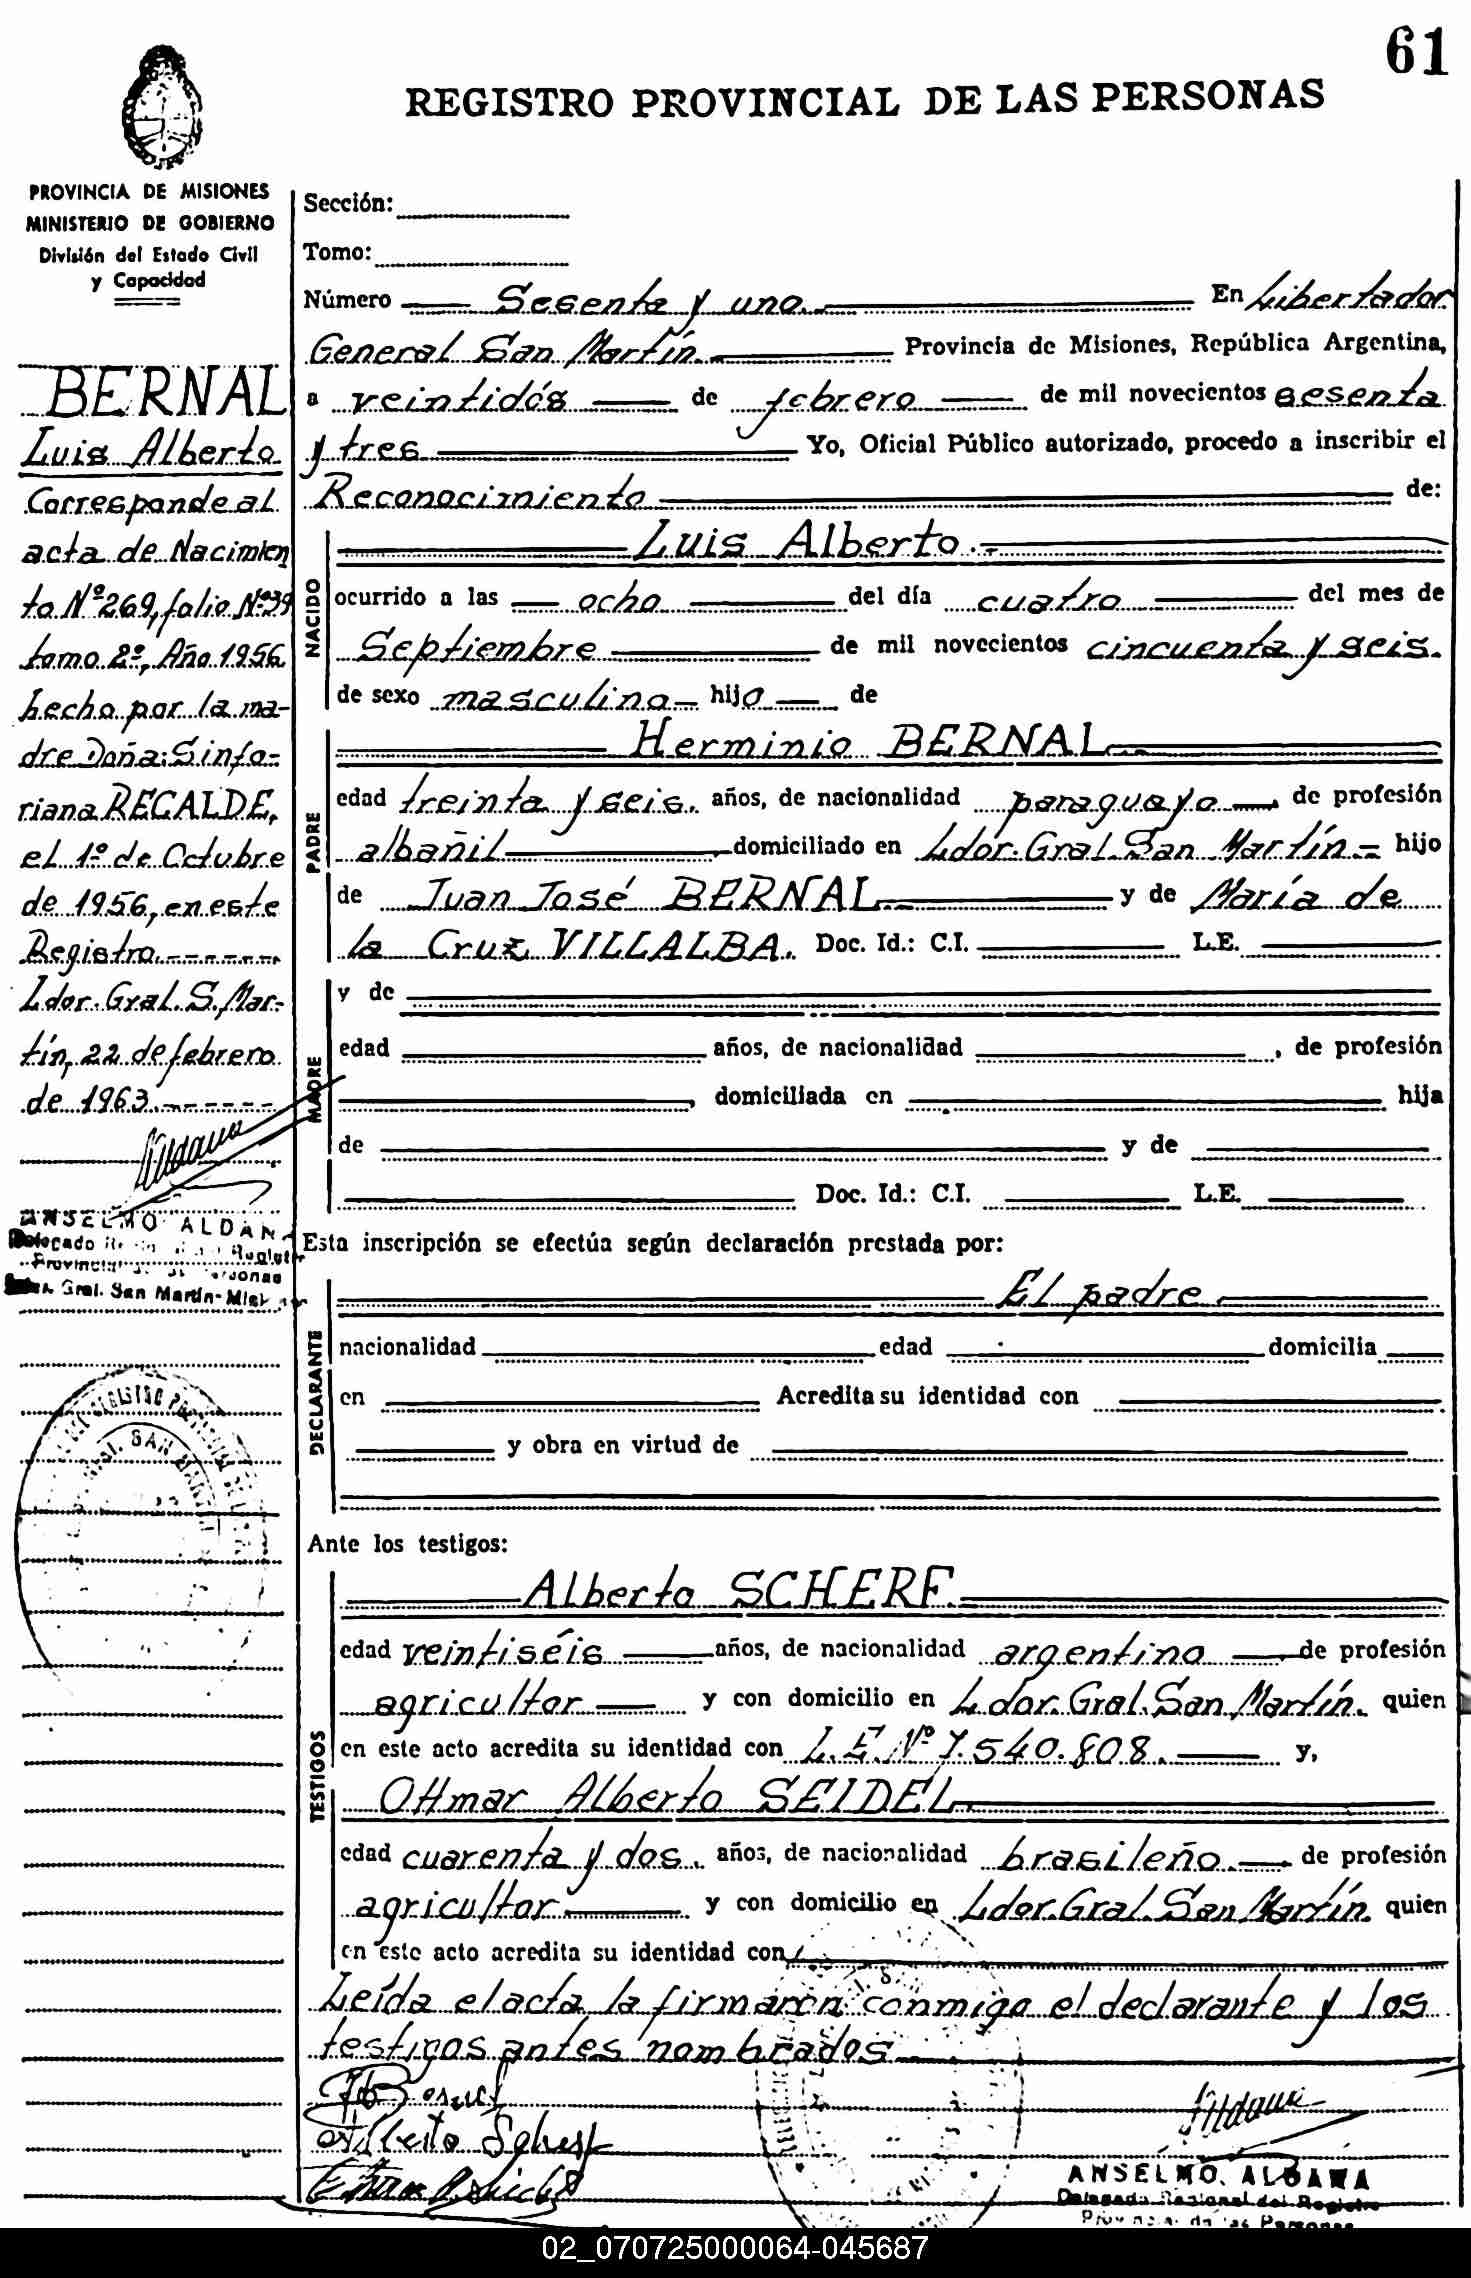 61
REGISTRO PROVINCIAL DE LAS PERSONAS
PROVINCIA DE MISIONES
MINISTERIO DE GOBIERNO
División del Estado Civil
y Capacidad
BERNAL
Luis Alberto
Corresponde al
acta de Nacimien
to Nº 269, folio Nº 39
tomo 2º, Año 1956
hecho por la ma-
dre Doña: Sinfo-
riana RECALDE,
el 1º de Octubre
de 1956, en este
Registro.-------
Ldor. Gral. S. Mar-
tín, 22 de febrero
de 1963.------
ANSELMO ALDANA
Delegado
Provincial Personas
Gral. San Martín-
SAN
Sección:
Tomo:
Número Sesenta y uno. En Libertador
General San Martín. Provincia de Misiones, República Argentina,
a veintidós de febrero de mil novecientos sesenta
y tres Yo, Oficial Público autorizado, procedo a inscribir el
Reconocimiento de:
NACIDO
Luis Alberto.-
ocurrido a las ocho del día cuatro del mes de
Septiembre de mil novecientos cincuenta y seis.
de sexo masculino hijo de
PADRE
Herminio BERNAL.-
edad treinta y seis. años, de nacionalidad paraguayo , de profesión
albañil , domiciliado en Ldor. Gral. San Martín.- hijo
de Juan José BERNAL.- y de María de
la Cruz VILLALBA. Doc. Id.: C.I. L.E.
MADRE
y de
edad años, de nacionalidad , de profesión
, domiciliada en hija
de y de
Doc. Id.: C.I. L.E.
Esta inscripción se efectúa según declaración prestada por:
DECLARANTE
El padre.
nacionalidad edad domicilia
en Acredita su identidad con
y obra en virtud de
Ante los testigos:
TESTIGOS
Alberto SCHERF.
edad veintiséis años, de nacionalidad argentino , de profesión
agricultor y con domicilio en Ldor. Gral. San Martín. quien
en este acto acredita su identidad con L.E. Nº 7.540.808. y,
Ottmar Alberto SEIDEL.
edad cuarenta y dos. años, de nacionalidad brasileño. , de profesión
agricultor y con domicilio en Ldor. Gral. San Martín. quien
en este acto acredita su identidad con
Leída el acta la firmaron conmigo el declarante y los
testigos antes nombrados
ANSELMO ALDANA
Delegado Regional del Registro
Provincial de las Personas
02_070725000064-045687